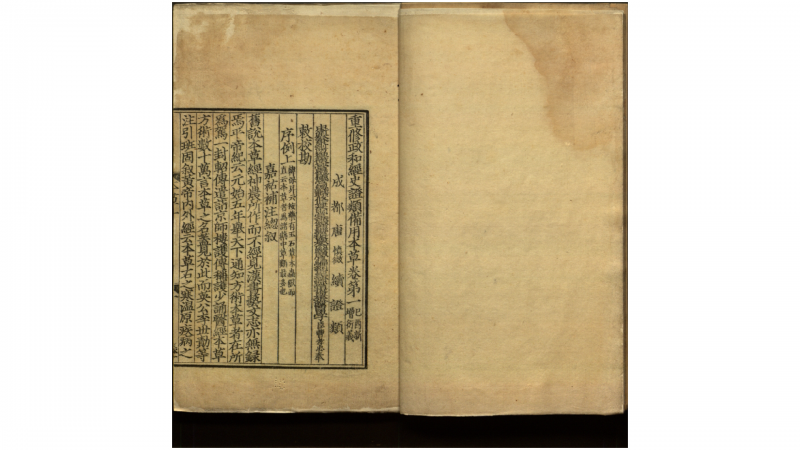 重修政和經史證類備用本草卷第一 己酉新增衍義
成都唐慎微續證類
敕校勘
序例上
嘉祐補注總叙
舊說本草經神農所作而不經見漢書藝文志亦無錄
焉平帝紀云元始五年舉天下通知方術本草者在所
爲駕一封軺傳遣詣京師樓護傳稱護少誦醫經本草
方術數十萬言本草之名蓋見於此而英公李世勣等
注引班固叙黃帝內外經云本草石之寒溫原疾病之